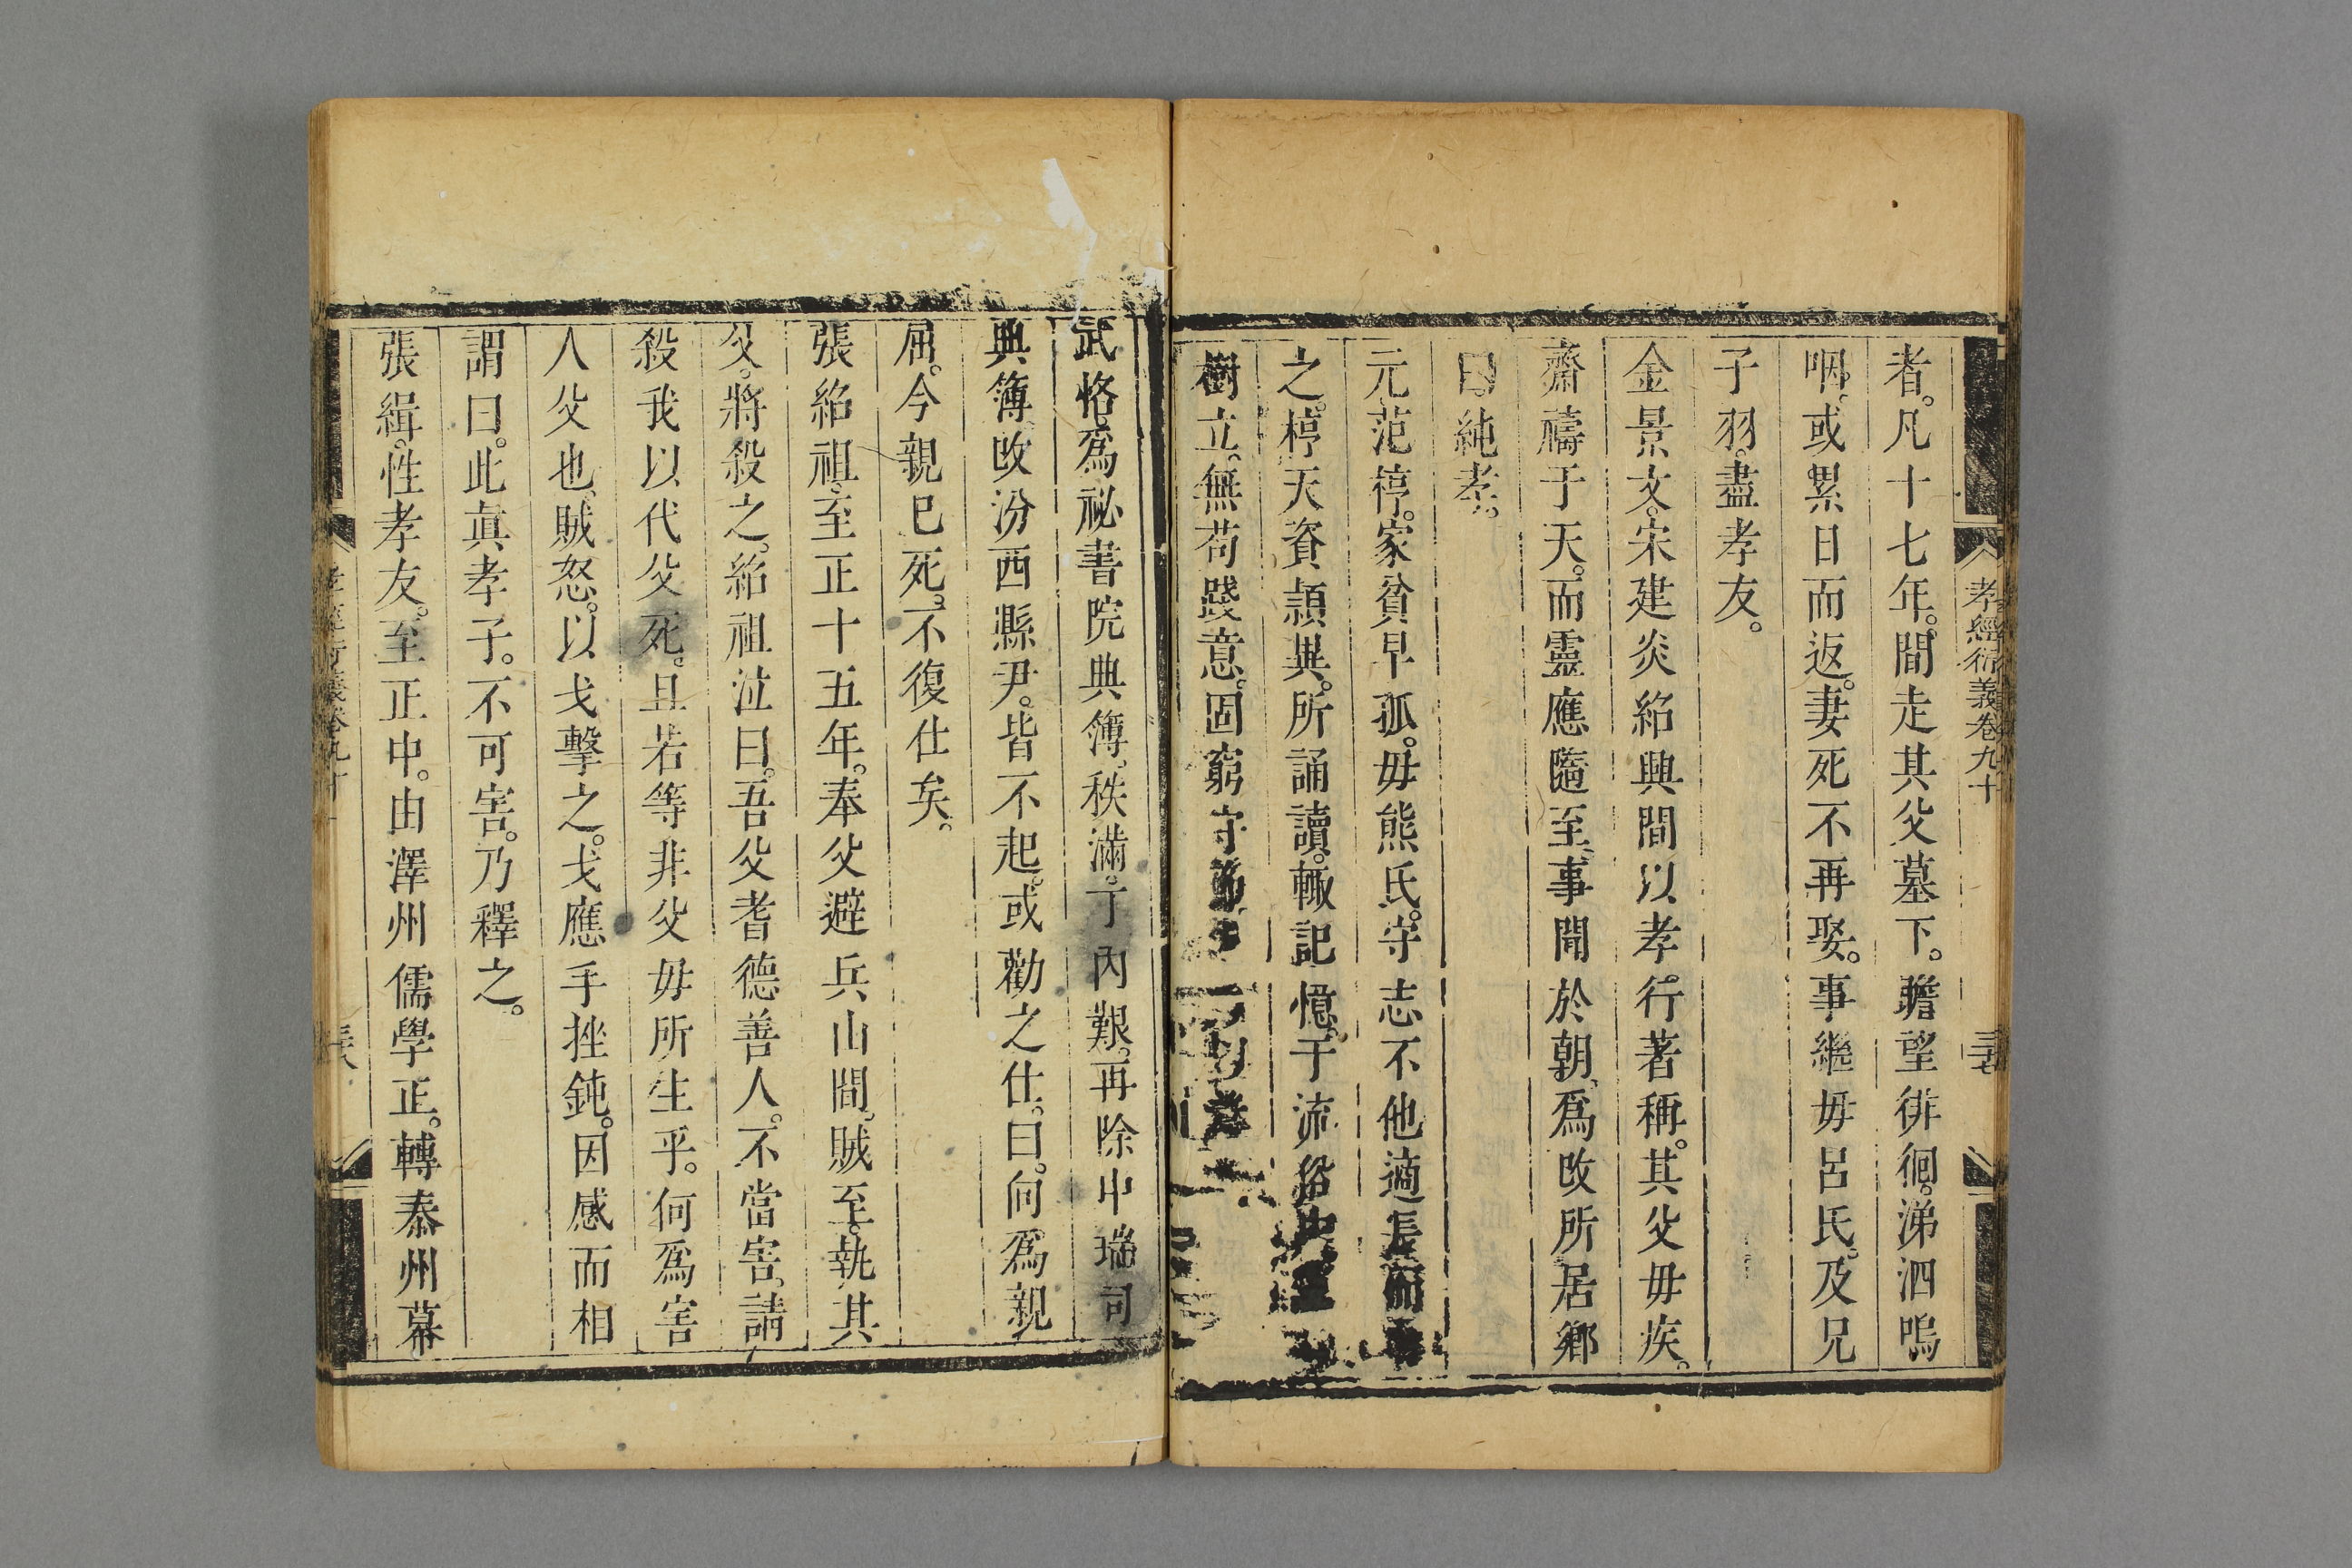 孝經衍義卷九十
三十七
者。凡十七年。間走其父墓下。瞻望徘徊。涕泗嗚
咽。或累日而返。妻死不再娶。事繼毋呂氏。及兄
子羽。盡孝友。
金景文。宋建炎紹興間以孝行著稱。其父毋疾。
齋禱于天。而靈應隨至。事聞於朝。爲改所居鄉
曰。純孝。
元范椁。家貧早孤。毋熊氏。守志不他適。長而
之。椁天資頴異。所誦讀。輒記憶。于流俗中
樹立。無苟踐意。固窮守
武恪。爲祕書院典簿。秩滿。丁內艱。再除中瑞司
典簿。改汾西縣尹。皆不起。或勸之仕。曰。向爲親
屈。今親巳死。不復仕矣。
張紹祖。至正十五年。奉父避兵山間。賊至。執其
父。將殺之。紹祖泣曰。吾父耆德善人。不當害。請
殺我以代父死。且若等非父毋所生乎。何爲害
人父也。賊怒。以戈擊之。戈應手挫鈍。因感而相
謂曰。此眞孝子。不可害。乃釋之。
張緝。性孝友。至正中。由澤州儒學正。轉泰州幕